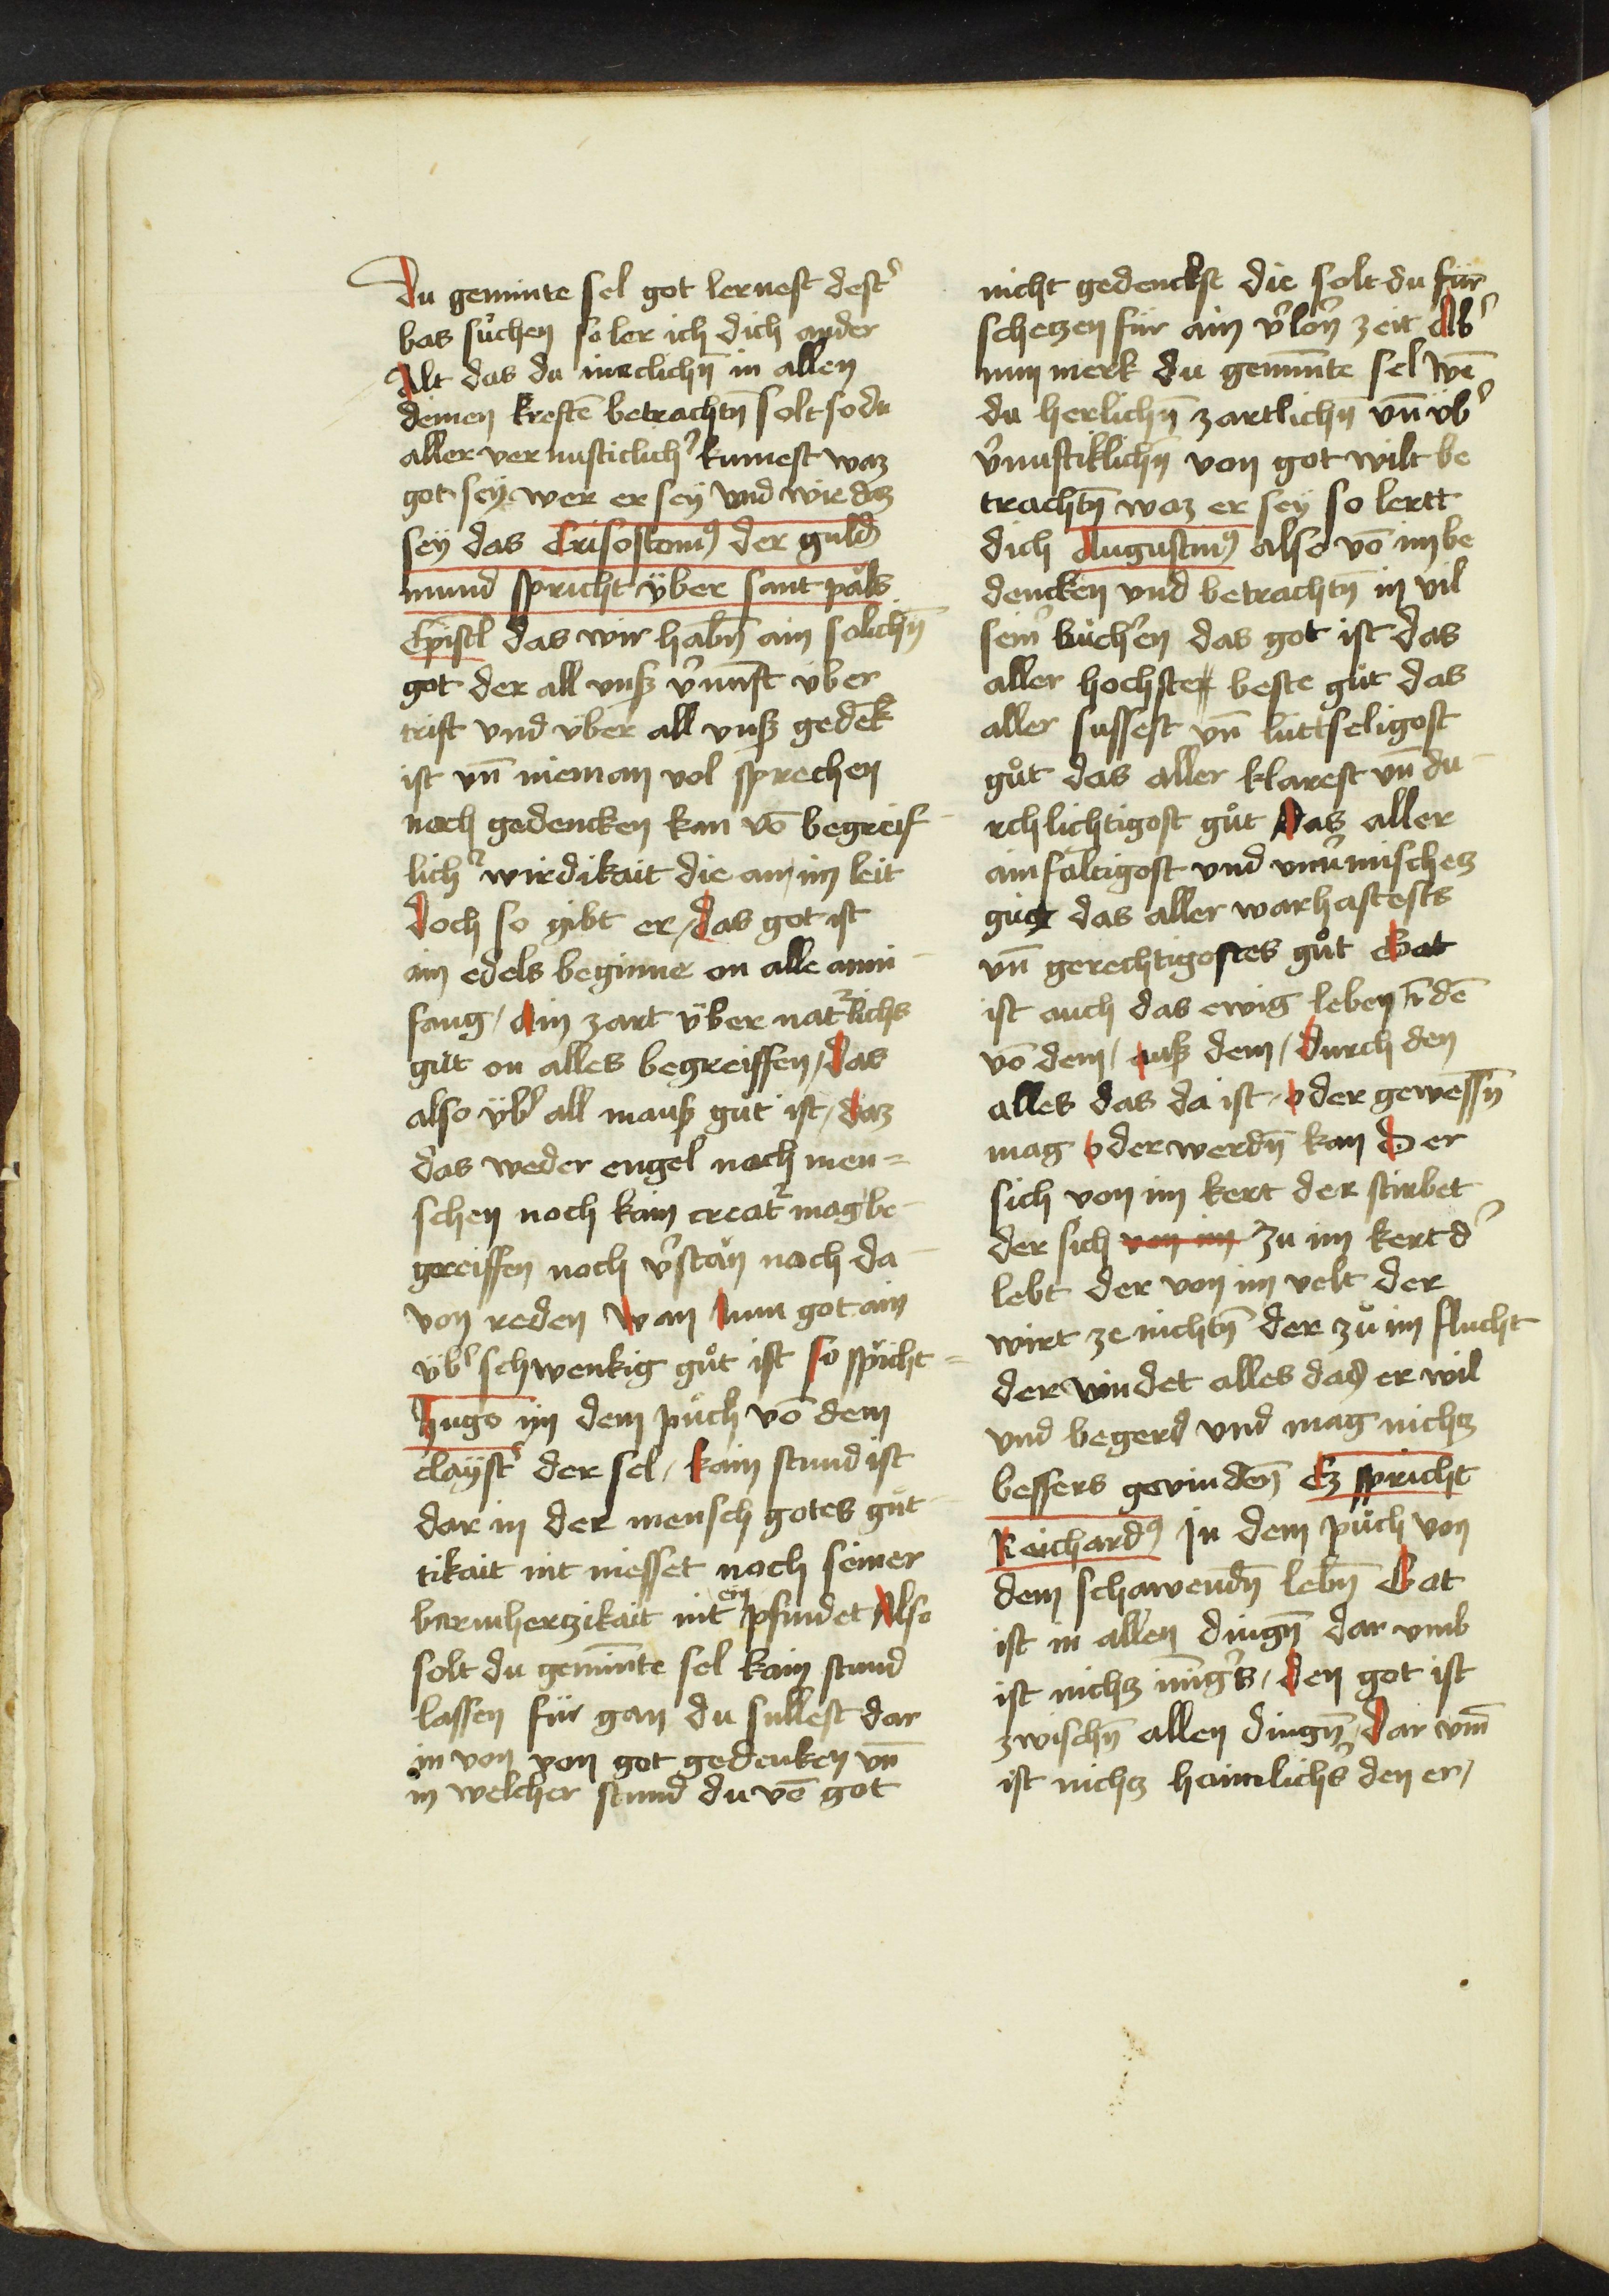 du geminte sel got lernest dest᷑
bas sůchen so ler ich dich ander
Alt das du inneclichn̄ in allen
deinen krefte᷑ betrachtn̄ solt so du
aller vernufticlich᷑ kumest waz
got sey wer er sey vnd wie daz
sey das Crisostomꝰ der guld
mund spricht über sant pals
Epistl das wir habn̄ ain solichn̄
got der all vnsz v᷑nunft über
trift vnd über all vnsz gedēk
ist vn̄ nieman vol sprechen
noch gedencken kan vō begreif
lich᷑ wirdikait die an im leit
Doch so gibt er / das got ist
ain edels beginne on alle anni
fang / Ain zart über nat᷑lichs
gůt on alles begreiffen / das
also üb᷑ all mausz gůt ist / daz
das weder engel noch men=
schen noch kain creat᷑ mag be
greiffen noch v᷑stan noch da
von reden Wan Nun got ain
üb᷑ schwenkig gůt ist so spicht=
Hugo im dem půch vō dem
clayst᷑ der sel / kain stund ist
dar in der mensch gotes gůt
tikait nit niesset noch seiner
barmhertzikait nit enpfindet Also
solt du geminnte sel kain stund
lassen für gan du sullest dar
in von von got gedenken vn̄
in welcher stund du vō got
nicht gedenckst die solt du für
schetzen für ain v᷑lorn̄ zeit Ab᷑
nun merk du geminnte sel wē
du herlichn̄ zartlichn̄ vn̄ üb᷑
v᷑nuftiklichn̄ von got wilt be
trachtn̄ waz er sey so lertt
dich Augustinꝰ also vō im be
dencken vnd betrachtn̄ in vil
sein᷑ bůch᷑en das got ist das
aller hochste beste gůt das
aller sussest vn̄ luttseligost
gůt das aller klarest vn̄ du
rchlichtigost gůt Das aller
ainfaltigost vnd vnu᷑mischetz
gůt das aller warhaftests
vn̄ gerechtigostes gůt Got
ist auch das ewig leben in dē
vō dem / ausz dem / durch den
alles das da ist / oder gewessn̄
mag oder werdn̄ kan Der
sich von im kert der stirbet
der sich von im zu im kert d᷑
lebt der von im velt der
wirt ze nichtn̄ der zů im flucht
der vindet alles das er wil
vnd begerd vnd mag nichtz
bessers gevinden̄ Ez spricht
Reichardꝰ in dem půch von
dem schawendn̄ lebn̄ Got
ist in allen dingn̄ dar vmb
ist nichtz inng᷑s / den got ist
zwischn̄ allen dingn̄ / Dar vm̄
ist nichtz haimlichs den er /